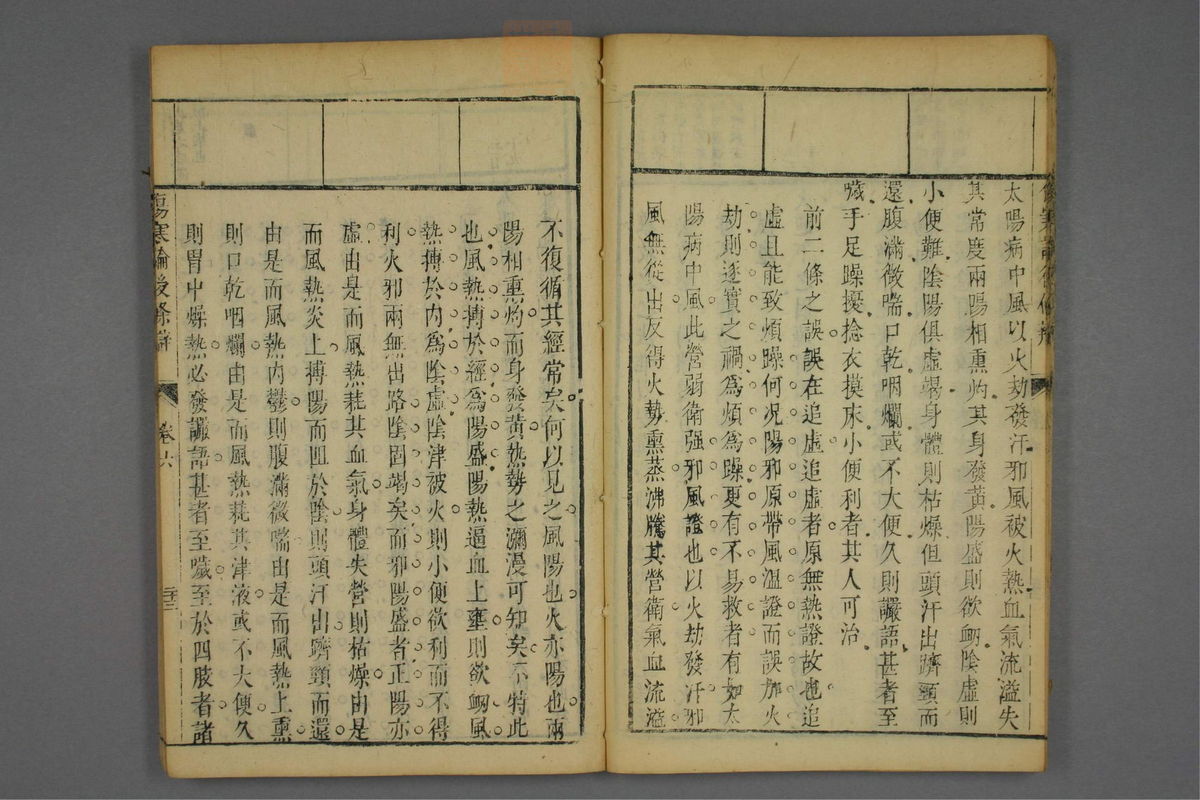 太陽病中風以火劫發汗邪風被火熱血氣流溢失
其常度兩陽相熏灼其身發黃陽盛則欲衂陰虛則
小便難陰陽俱虛竭身體則枯燥但頭汗出躋頸而
還腹滿微喘口乾咽爛或不大便久則讝語甚者至
噦手足躁擾捻衣摸床小便利者其人可治
前二條之誤誤在追虛追虛者原無熱證故也追
虛且能致煩躁何况陽邪原帶風溫證而誤加火
劫則逐實之禍爲煩爲躁更有不易救者有如太
陽病中風此營弱衛强邪風證也以火劫發汗邪
風無從出反得火勢熏蒸沸騰其營衛氣血流溢
不復循其經常矣何以見之風陽也火亦陽也兩
陽相熏灼而身發黃熱勢之瀰漫可知矣不特此
也風熱搏於經爲陽盛陽熱逼血上壅則欲衂風
熱搏於内爲陰虛陰津被火則小便欲利而不得
利火邪兩無出路陰固竭矣而邪陽盛者正陽亦
虛由是而風熱耗其血氣身體失營則枯燥由是
而風熱炎上搏陽而阻於陰則頭汗出躋頸而還
由是而風熱内鬱則腹滿微喘由是而風熱上熏
則口乾咽爛由是而風熱耗其津液或不大便久
則胃中燥熱必發讝語甚者至噦至於四肢者諸
傷寒論後條辯
卷六